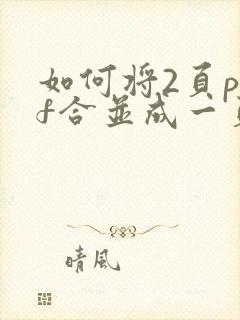 如何将2頁p
f合並成一
晴風